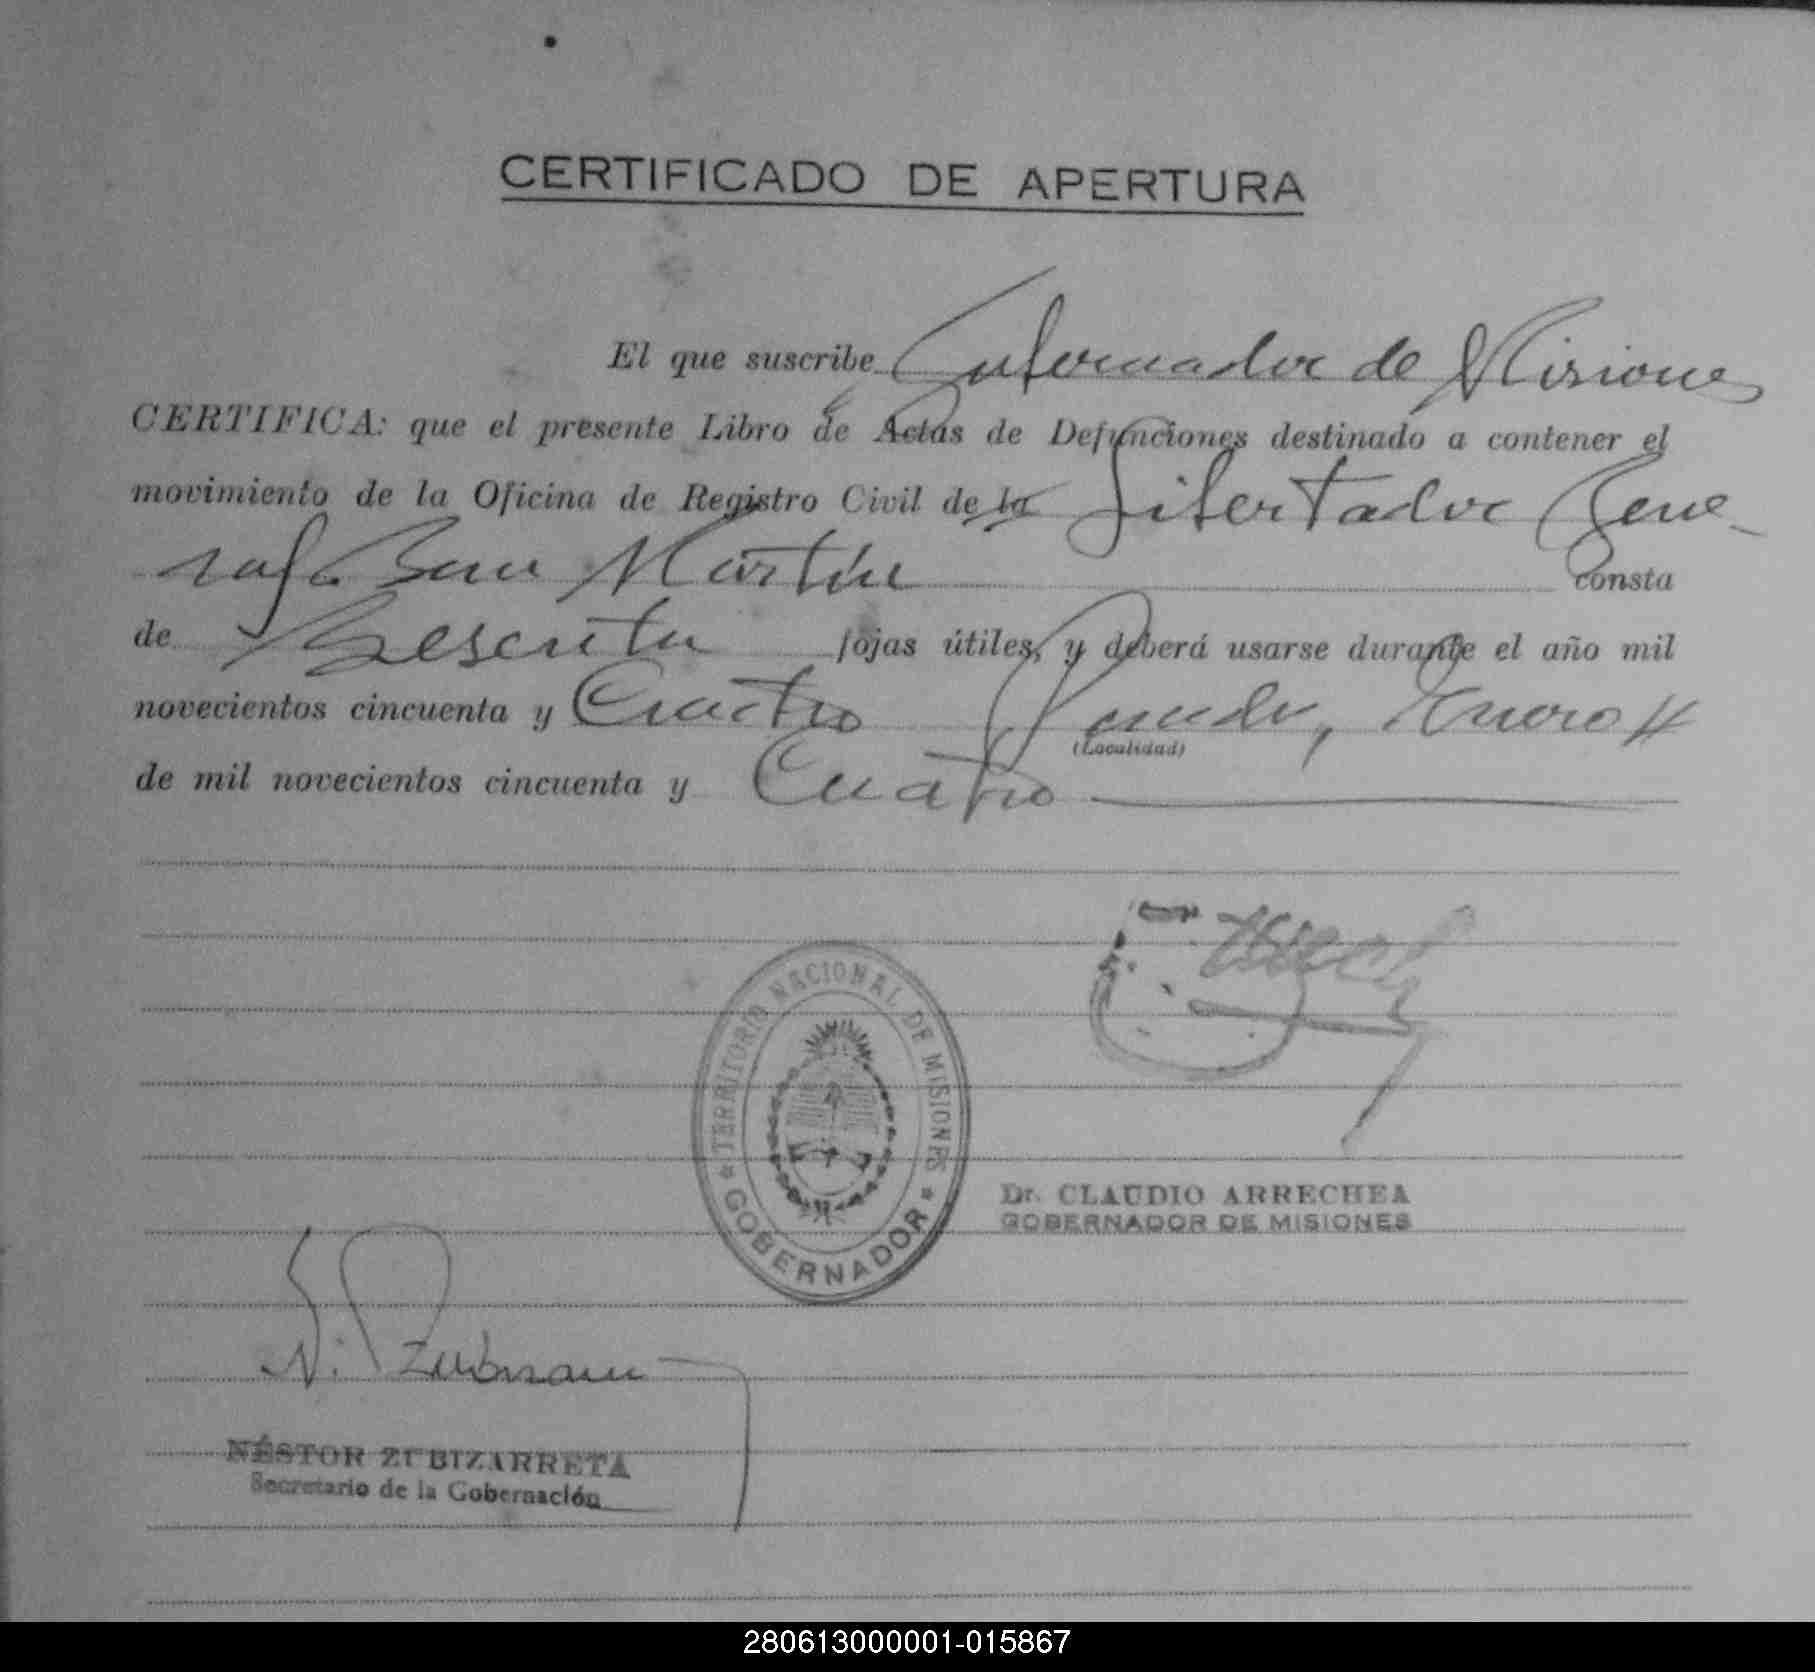 CERTIFICADO DE APERTURA
El que suscribe Gobernador de Misiones
CERTIFICA: que el presente Libro de Actas de Defunciones destinado a contener el
movimiento de la Oficina de Registro Civil de la Libertador Gene-
ral San Martín consta
de Sesenta fojas útiles, y deberá usarse durante el año mil
novecientos cincuenta y Cuatro Posadas, Enero 4
(Localidad)
de mil novecientos cincuenta y Cuatro
TERRITORIO NACIONAL DE MISIONES
GOBERNADOR
Dr. CLAUDIO ARRECHEA
GOBERNADOR DE MISIONES
N. Zubizarreta
NÉSTOR ZUBIZARRETA
Secretario de la Gobernación
280613000001-015867